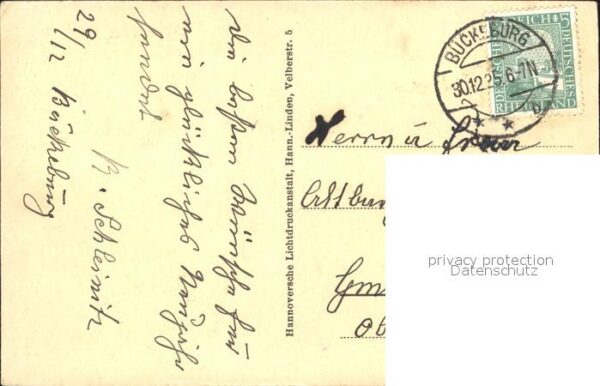 29/12 Bückeburg
Die besten Wünsche für
ein glückliches Neujahr
sendet
K. Schleimitz
Hannoversche Lichtdruckanstalt, Hann.-Linden, Velberstr. 5
BÜCKEBURG
30.12.25. 6-7N
REICH 5
DEUTSCHES
RHEINLAND
Herrn u
Altbu
Gm
Ob
privacy protection
Datenschutz